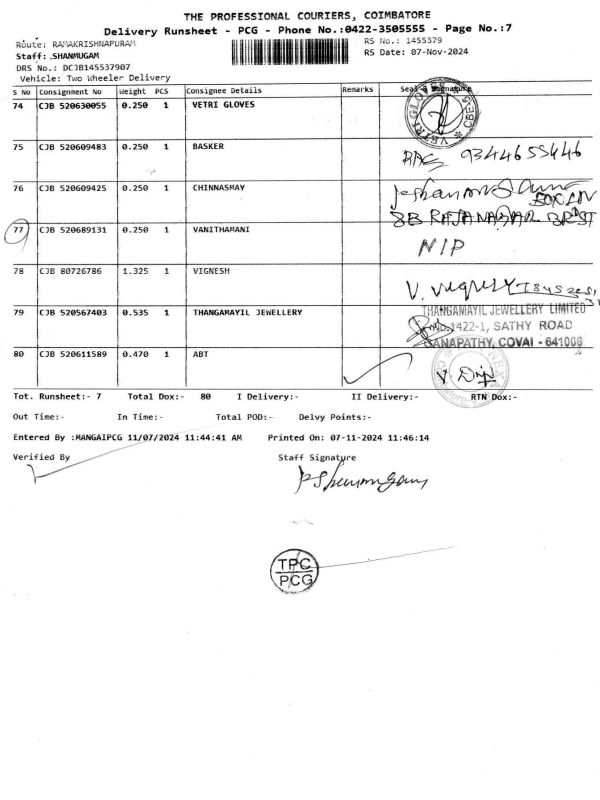 THE PROFESSIONAL COURIERS, COIMBATORE
Delivery Runsheet - PCG - Phone No.:0422-3505555 - Page No.:7
Route: RAMAKRISHNAPURAM
RS No.: 1455379
Staff: .SHANMUGAM
RS Date: 07-Nov-2024
DRS No.: DCJB145537907
Vehicle: Two Wheeler Delivery
S No Consignment No Weight PCS Consignee Details Remarks Seal & Signature
74 CJB 520630055 0.250 1 VETRI GLOVES
VETRI GLOVES CBE-5
75 CJB 520609483 0.250 1 BASKER
9344655446
76 CJB 520609425 0.250 1 CHINNASMAY
3B RAJANAGAR
77 CJB 520689131 0.250 1 VANITHAMANI
NIP
78 CJB 80726786 1.325 1 VIGNESH
V. Vignesh
79 CJB 520567403 0.535 1 THANGAMAYIL JEWELLERY
THANGAMAYIL JEWELLERY LIMITED
1422-1, SATHY ROAD
GANAPATHY, COVAI - 641006
80 CJB 520611589 0.470 1 ABT
Tot. Runsheet:- 7 Total Dox:- 80 I Delivery:- II Delivery:- RTN Dox:-
Out Time:- In Time:- Total POD:- Delvy Points:-
Entered By :MANGAIPCG 11/07/2024 11:44:41 AM Printed On: 07-11-2024 11:46:14
Verified By Staff Signature
P. Shanmugam
TPC
PCG